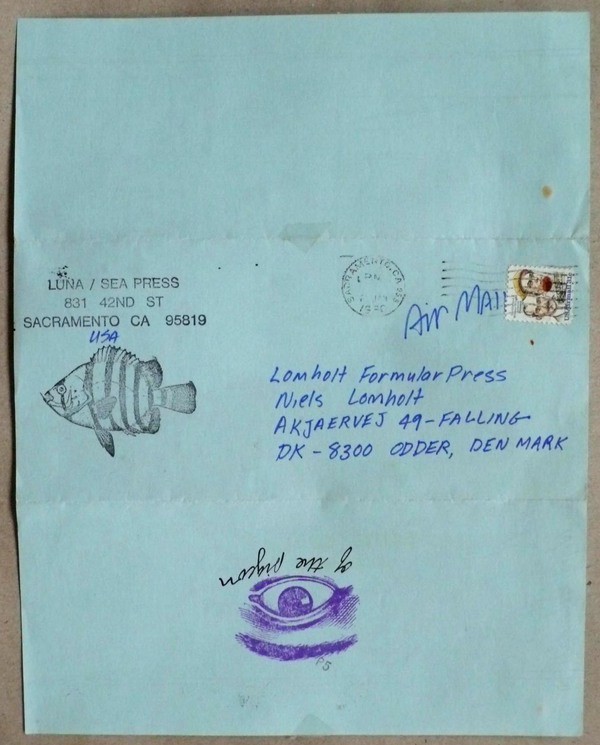 LUNA / SEA PRESS
831 42ND ST
SACRAMENTO CA 95819
USA
SACRAMENTO, CA
PM
AIR MAIL
Lomholt Formular Press
Niels Lomholt
AKJAERVEJ 49-FALLING
DK-8300 ODDER, DENMARK
of the pigeon